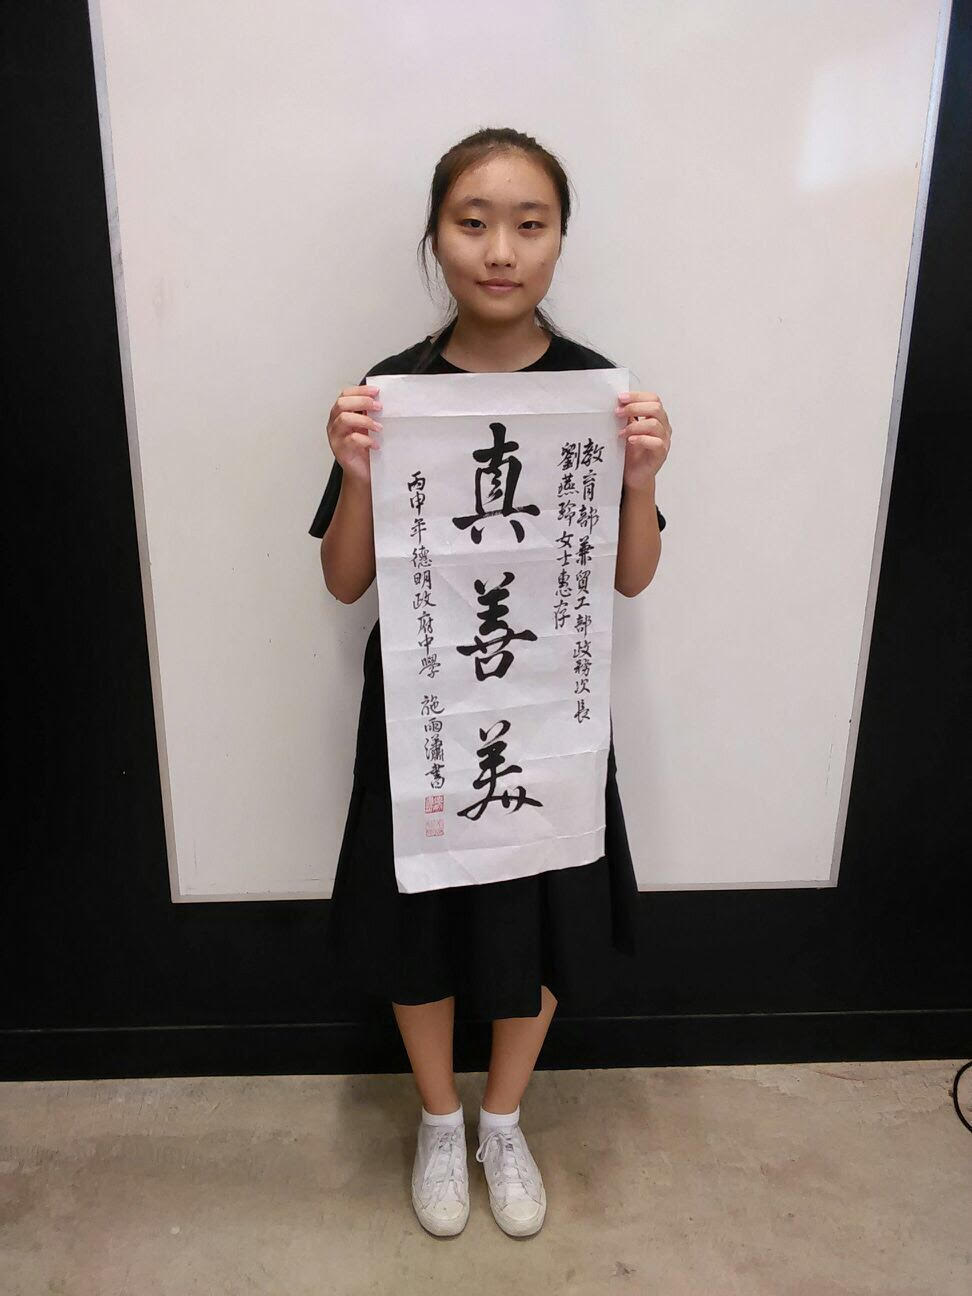 教育部兼貿工部政務次長
劉燕玲女士惠存
真善美
丙申年德明政府中學 施雨瀟書